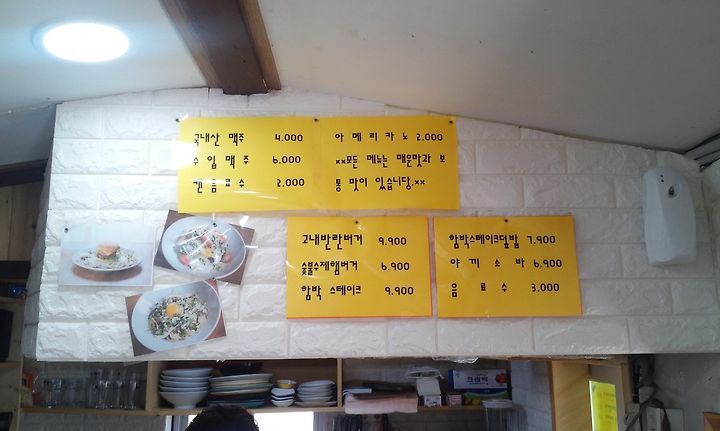 국내산 맥주 4.000
수입 맥주 6.000
캔음료수 2.000
아메리카노 2.000
××모든 메뉴는 매운맛과 보
통 맛이 있습니당.××
고내반란버거 9.900
숯불수제햄버거 6.900
함박 스테이크 9.900
함박스테이크덮밥 7.900
야끼소바 6.900
음료수 3.000
크린백